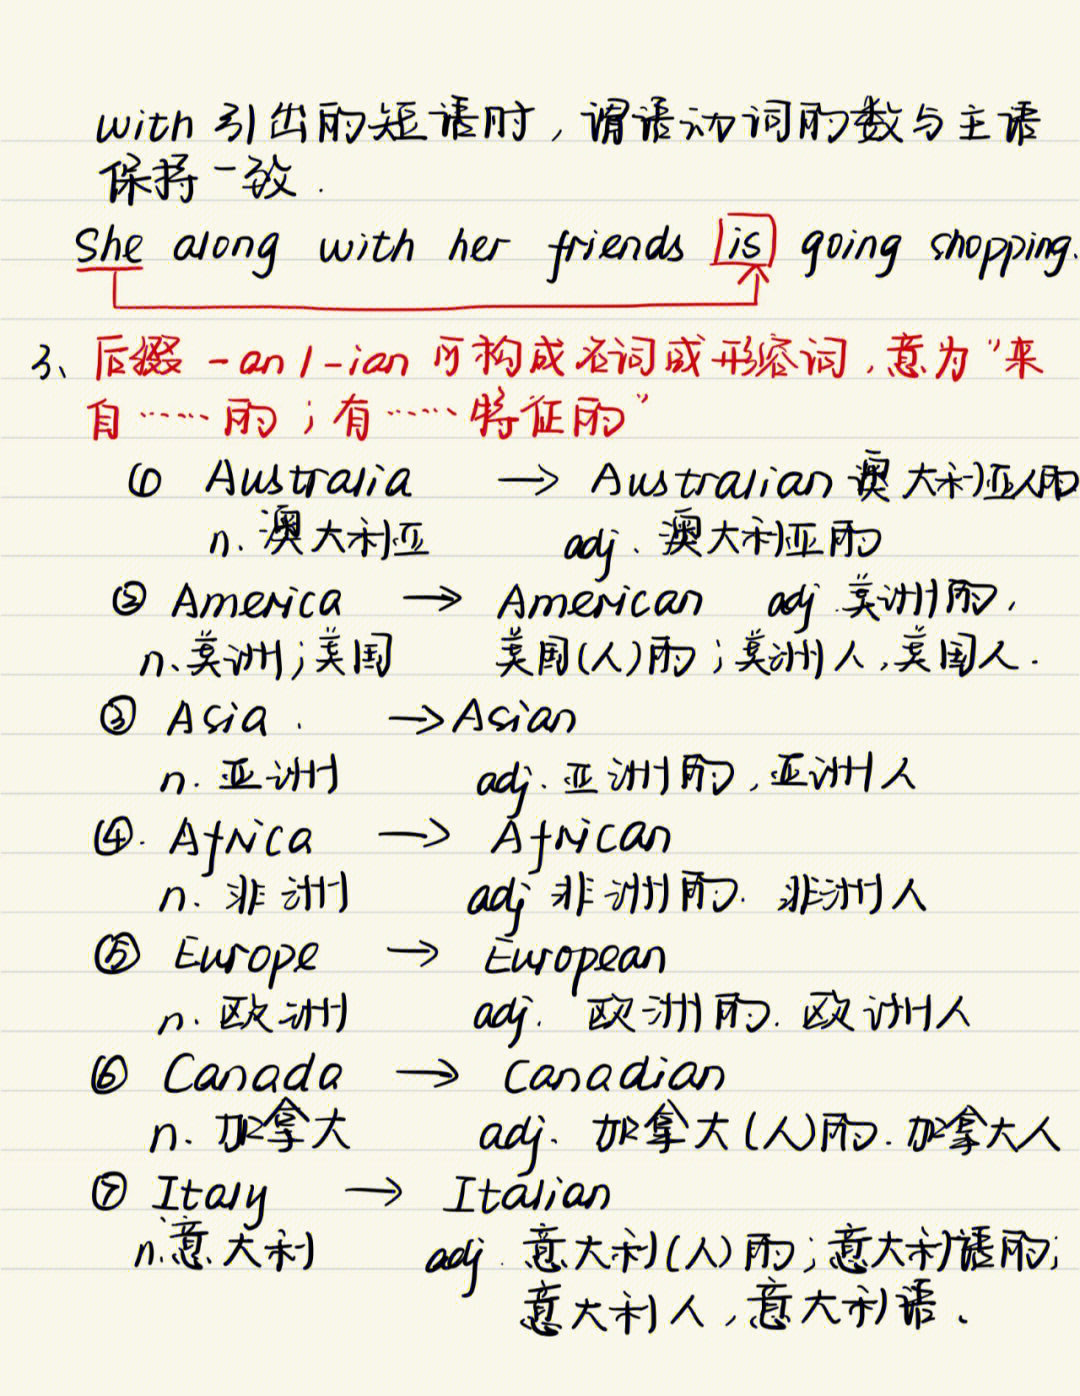 with 引出的短语时，谓语动词的数与主语
保持一致.
She along with her friends is going shopping.
3、后缀 -an / -ian 可构成名词或形容词，意为"来
自……的；有……特征的"
① Australia → Australian 澳大利亚人的
n. 澳大利亚 adj. 澳大利亚的
② America → American adj. 美洲的，
n. 美洲；美国 美国(人)的；美洲人，美国人.
③ Asia. → Asian
n. 亚洲 adj. 亚洲的，亚洲人
④. Africa → African
n. 非洲 adj 非洲的. 非洲人
⑤ Europe → European
n. 欧洲 adj. 欧洲的. 欧洲人
⑥ Canada → Canadian
n. 加拿大 adj. 加拿大(人)的. 加拿大人
⑦ Italy → Italian
n. 意大利 adj. 意大利(人)的；意大利语的；
意大利人，意大利语.